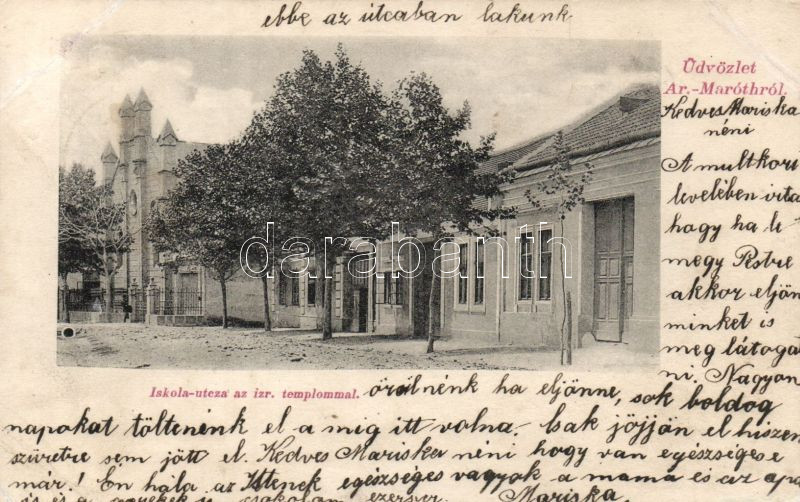 ebbe az útcában lakunk
Üdvözlet
Ar.-Maróthról.
Kedves Mariska
néni
A multkori
levelében irta
hogy ha le
megy Pestre
akkor eljön
minket is
meg látogat
ni. Nagyon
darabanth
Iskola-utcza az izr. templommal.
örülnénk ha eljönne, sok boldog
napokat töltenénk el a mig itt volna. Csak jöjjön el hiszen
szüretre sem jött el. Kedves Mariska néni hogy van egészsége
már! Én hála az Istenek egészséges vagyok a mama és az apa
is és a gyerekek is csókolom ezerszer Mariska.